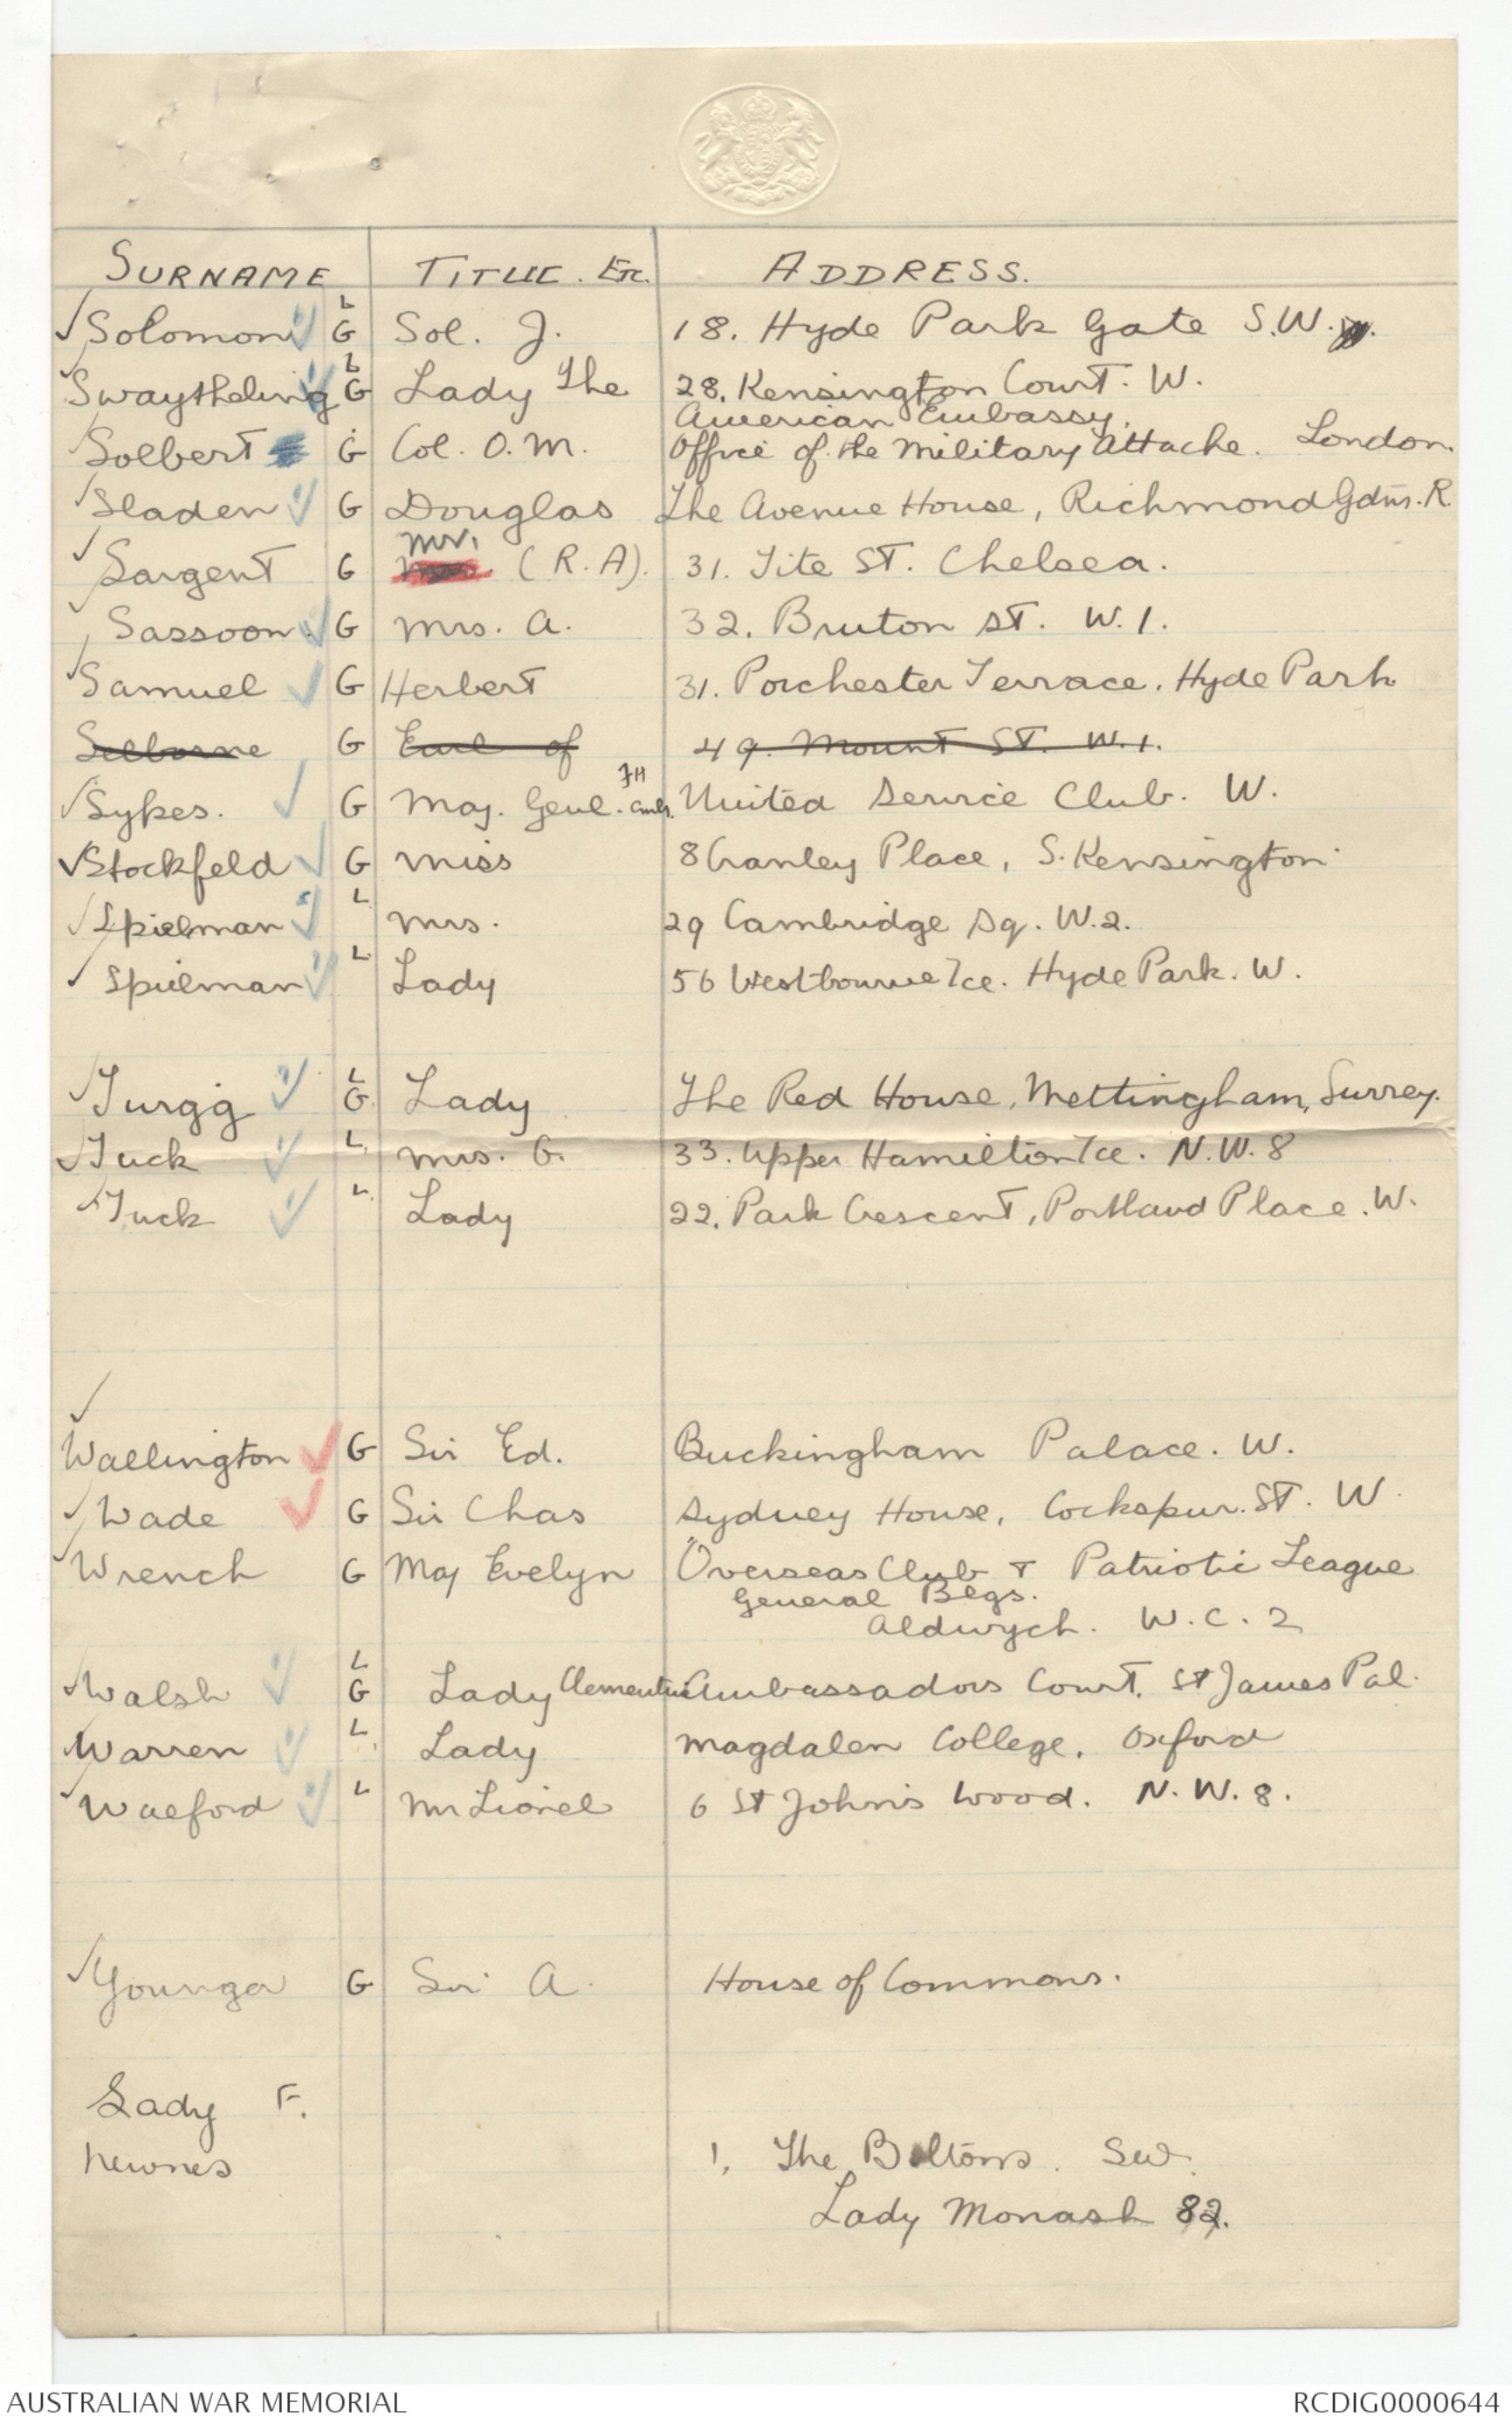 SURNAME TITLE. Etc. ADDRESS.
Solomon L G Sol. J. 18. Hyde Park Gate S.W.
Swaythling L G Lady The 28. Kensington Court. W.
American Embassy.
Solbert G Col. O. M. Office of the Military Attache. London.
Sladen G Douglas The Avenue House, Richmond Gdns. R
Sargent G Mr. (R.A). 31. Tite St. Chelsea.
Sassoon G Mrs. A. 32. Bruton St. W.1.
Samuel G Herbert 31. Porchester Terrace. Hyde Park
Selborne G Earl of 49. Mount St. W.1.
Sykes. G Maj. Genl. FH United Service Club. W.
Stockfeld G Miss 8 Cranley Place, S. Kensington
Spielman L Mrs. 29 Cambridge Sq. W.2.
Spielman L Lady 56 Westbourne Tce. Hyde Park. W.
Turgg L G. Lady The Red House, Mettingham, Surrey.
Tuck L. Mrs. G. 33. Upper Hamilton Tce. N.W.8
Tuck L. Lady 22. Park Crescent, Portland Place. W.
Wallington G Sir Ed. Buckingham Palace. W.
Wade G Sir Chas Sydney House, Cockspur. St. W.
Wrench G Maj Evelyn Overseas Club & Patriotic League
General Bldgs.
Aldwych. W.C.2
Walsh L G Lady Clementine Ambassadors Court. St James Pal.
Warren L Lady Magdalen College. Oxford
Walford L Mr Lionel 6 St John's Wood. N.W.8.
Younger G Sir A. House of Commons.
Lady F.
Newnes 1, The Boltons. SW.
Lady Monash 82.
AUSTRALIAN WAR MEMORIAL RCDIG0000644